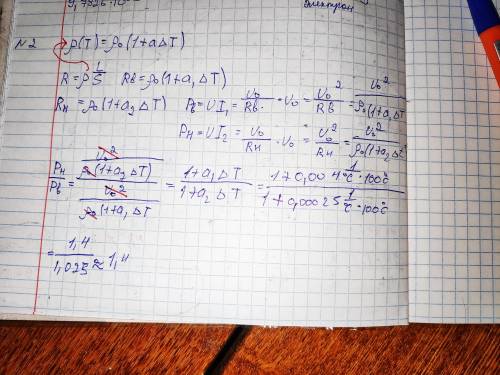 9,7826·10
электрон
N2 ρ(T)=ρ₀(1+aΔT)
R=ρ l/S Rв=ρ₀(1+a₁ΔT)
Rн=ρ₀(1+a₂ΔT) Pв=UI₁=U₀/Rв·U₀=U₀²/Rв=U₀²/ρ₀(1+a₁ΔT
Pн=UI₂=U₀/Rн·U₀=U₀²/Rн=U₀²/ρ₀(1+a₂
Pн/Pв=(U₀²/ρ₀(1+a₂ΔT))/(U₀²/ρ₀(1+a₁ΔT)=(1+a₁ΔT)/(1+a₂ΔT)=(1+0,004 1/°C·100°C)/(1+0,00025 1/°C·100°C)
=1,4/1,025≈1,4